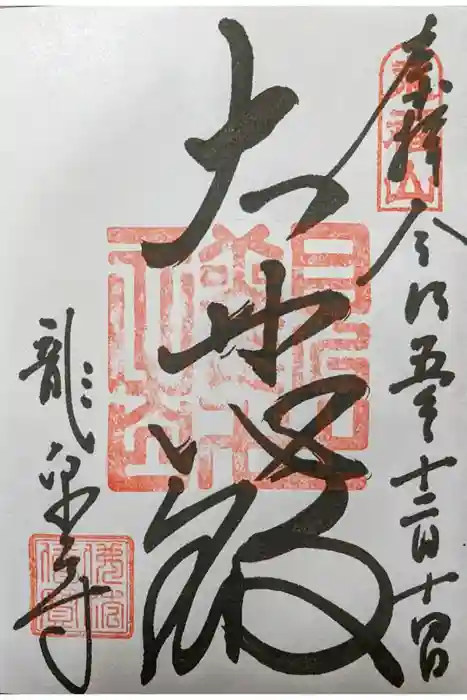 奉拝
令和五年十二月十四日
大悲殿
龍泉寺